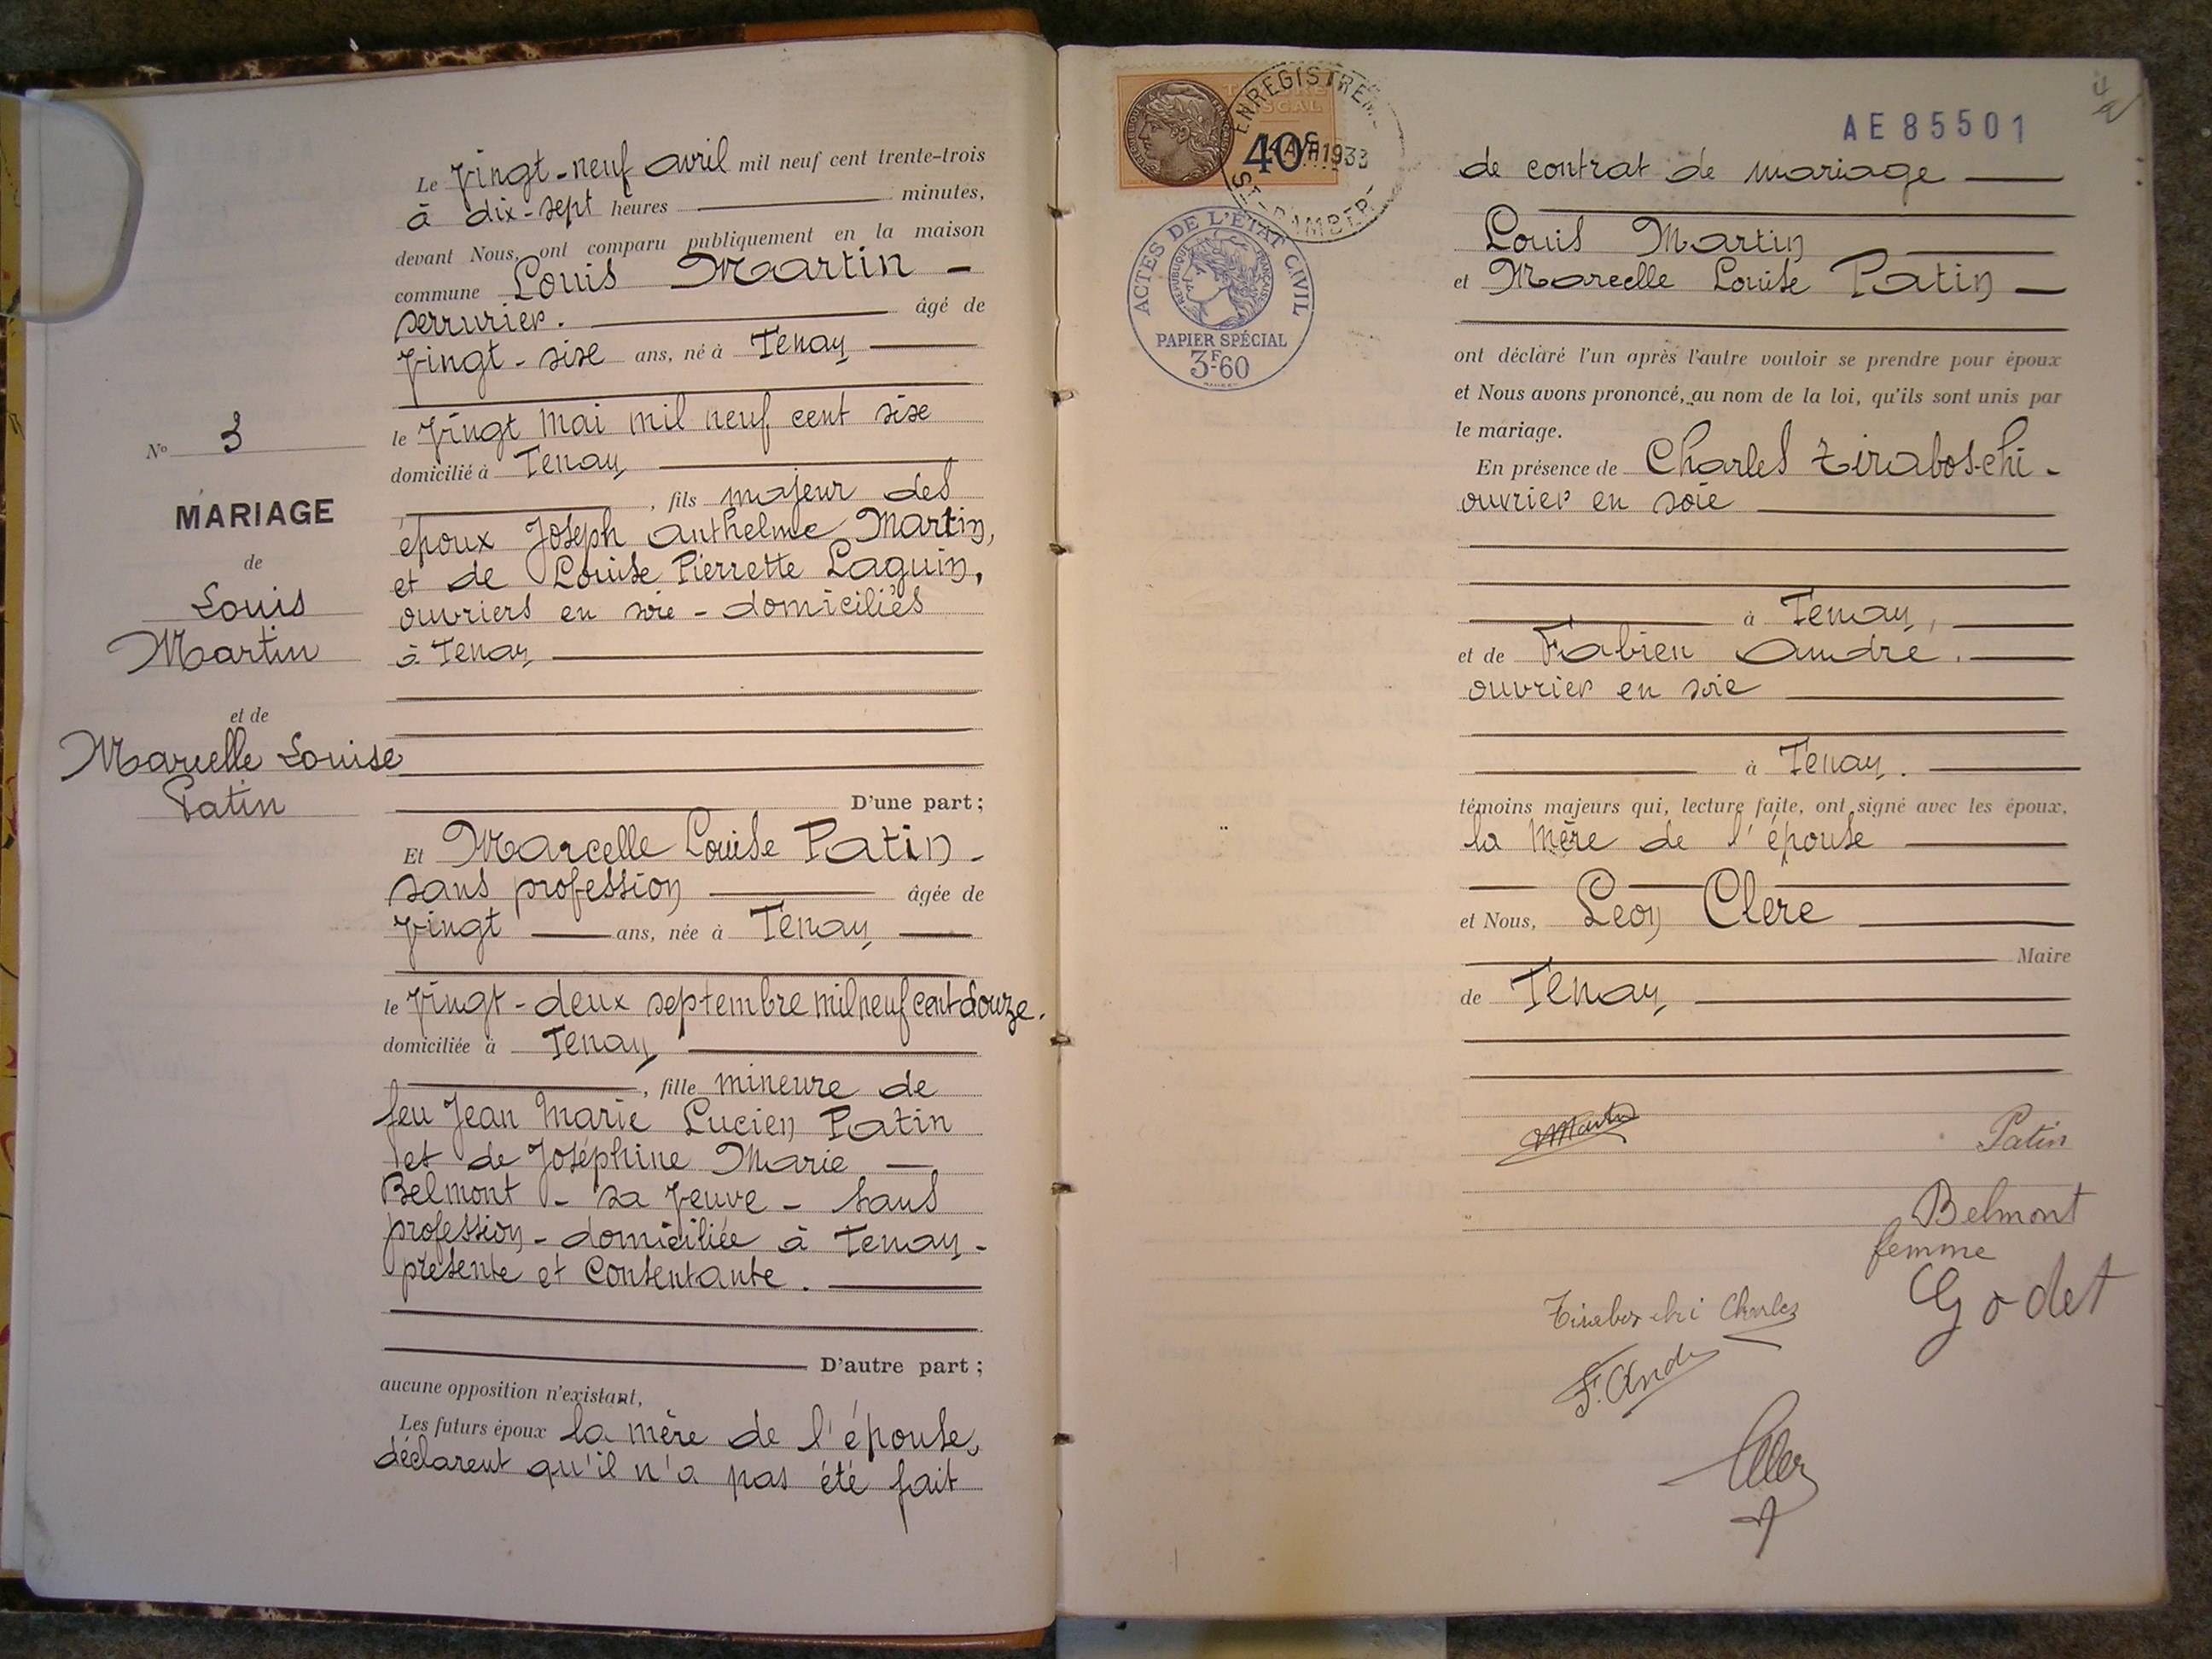 N° 3
MARIAGE
de
Louis
Martin
et de
Marcelle Louise
Patin
Le vingt-neuf avril mil neuf cent trente-trois
à dix-sept heures minutes,
devant Nous, ont comparu publiquement en la maison
commune Louis Martin -
serrurier. âgé de
vingt-sixe ans, né à Tenay
le vingt mai mil neuf cent sixe
domicilié à Tenay
, fils majeur des
époux Joseph Anthelme Martin,
et de Louise Pierrette Laguin,
ouvriers en soie - domiciliés
à Tenay
D'une part ;
Et Marcelle Louise Patin -
sans profession âgée de
vingt ans, née à Tenay
le vingt-deux septembre mil neuf cent douze.
domiciliée à Tenay
, fille mineure de
feu Jean Marie Lucien Patin
et de Joséphine Marie
Belmont - sa veuve - sans
profession - domiciliée à Tenay -
présente et consentante.
D'autre part ;
aucune opposition n'existant,
Les futurs époux la mère de l'épouse,
déclarent qu'il n'a pas été fait
ENREGISTREM
FISCAL
40c
AVR 1933
ST-RAMBER
ACTES DE L'ÉTAT CIVIL
RÉPUBLIQUE FRANÇAISE
PAPIER SPÉCIAL
3F60
AE 85501
de contrat de mariage
Louis Martin
et Marcelle Louise Patin
ont déclaré l'un après l'autre vouloir se prendre pour époux
et Nous avons prononcé, au nom de la loi, qu'ils sont unis par
le mariage.
En présence de Charles Tiraboschi -
ouvrier en soie
à Tenay,
et de Fabien André.
ouvrier en soie
à Tenay.
témoins majeurs qui, lecture faite, ont signé avec les époux,
la mère de l'épouse
et Nous, Léon Clerc
Maire
de Tenay
Martin
Patin
Belmont
femme
Godet
Tiraboschi Charles
F. André